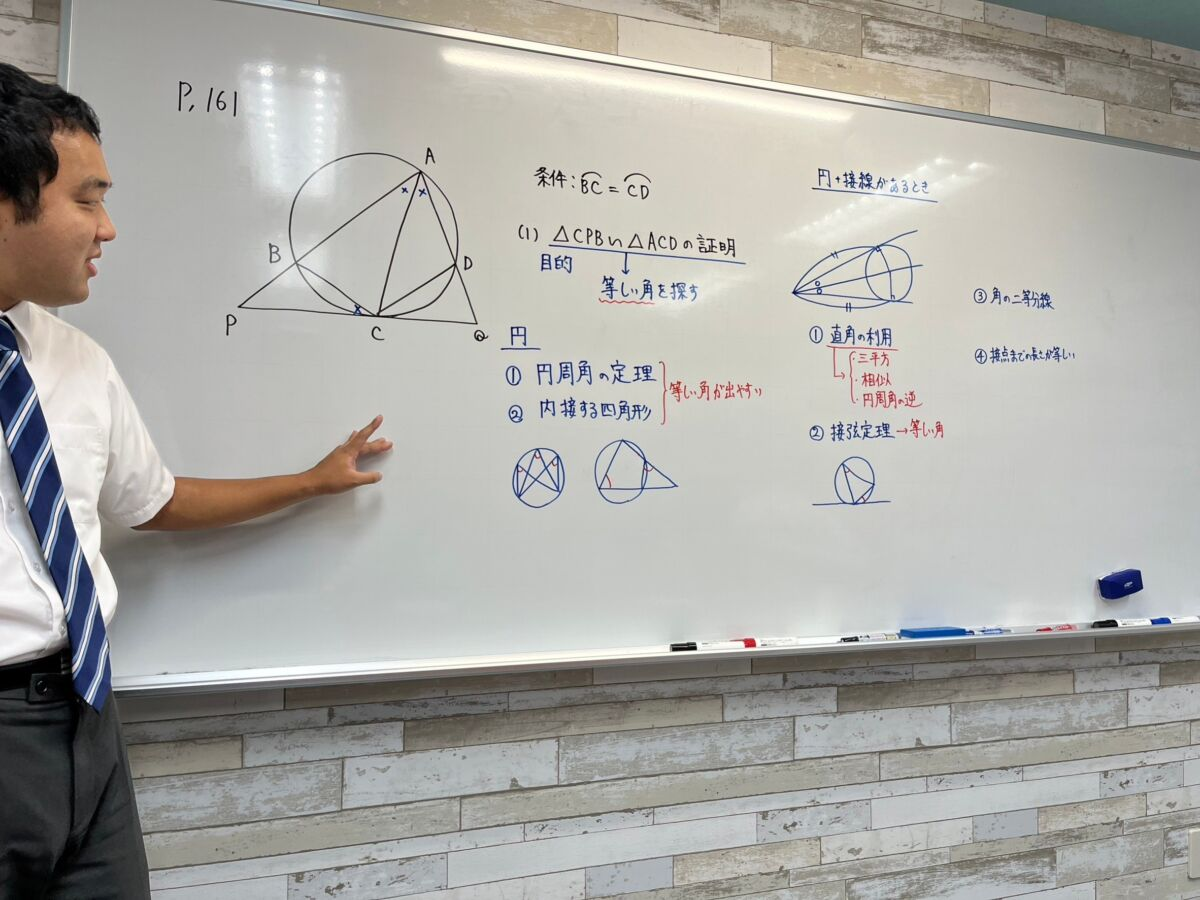 P. 161
A
B
D
P
C
Q
条件: BC = CD
(1) △CPB∽△ACDの証明
目的
等しい角を探す
円
① 円周角の定理
② 内接する四角形
等しい角が出やすい
円+接線があるとき
① 直角の利用
・三平方
・相似
・円周角の逆
② 接弦定理→等しい角
③ 角の二等分線
④ 接点までの長さが等しい